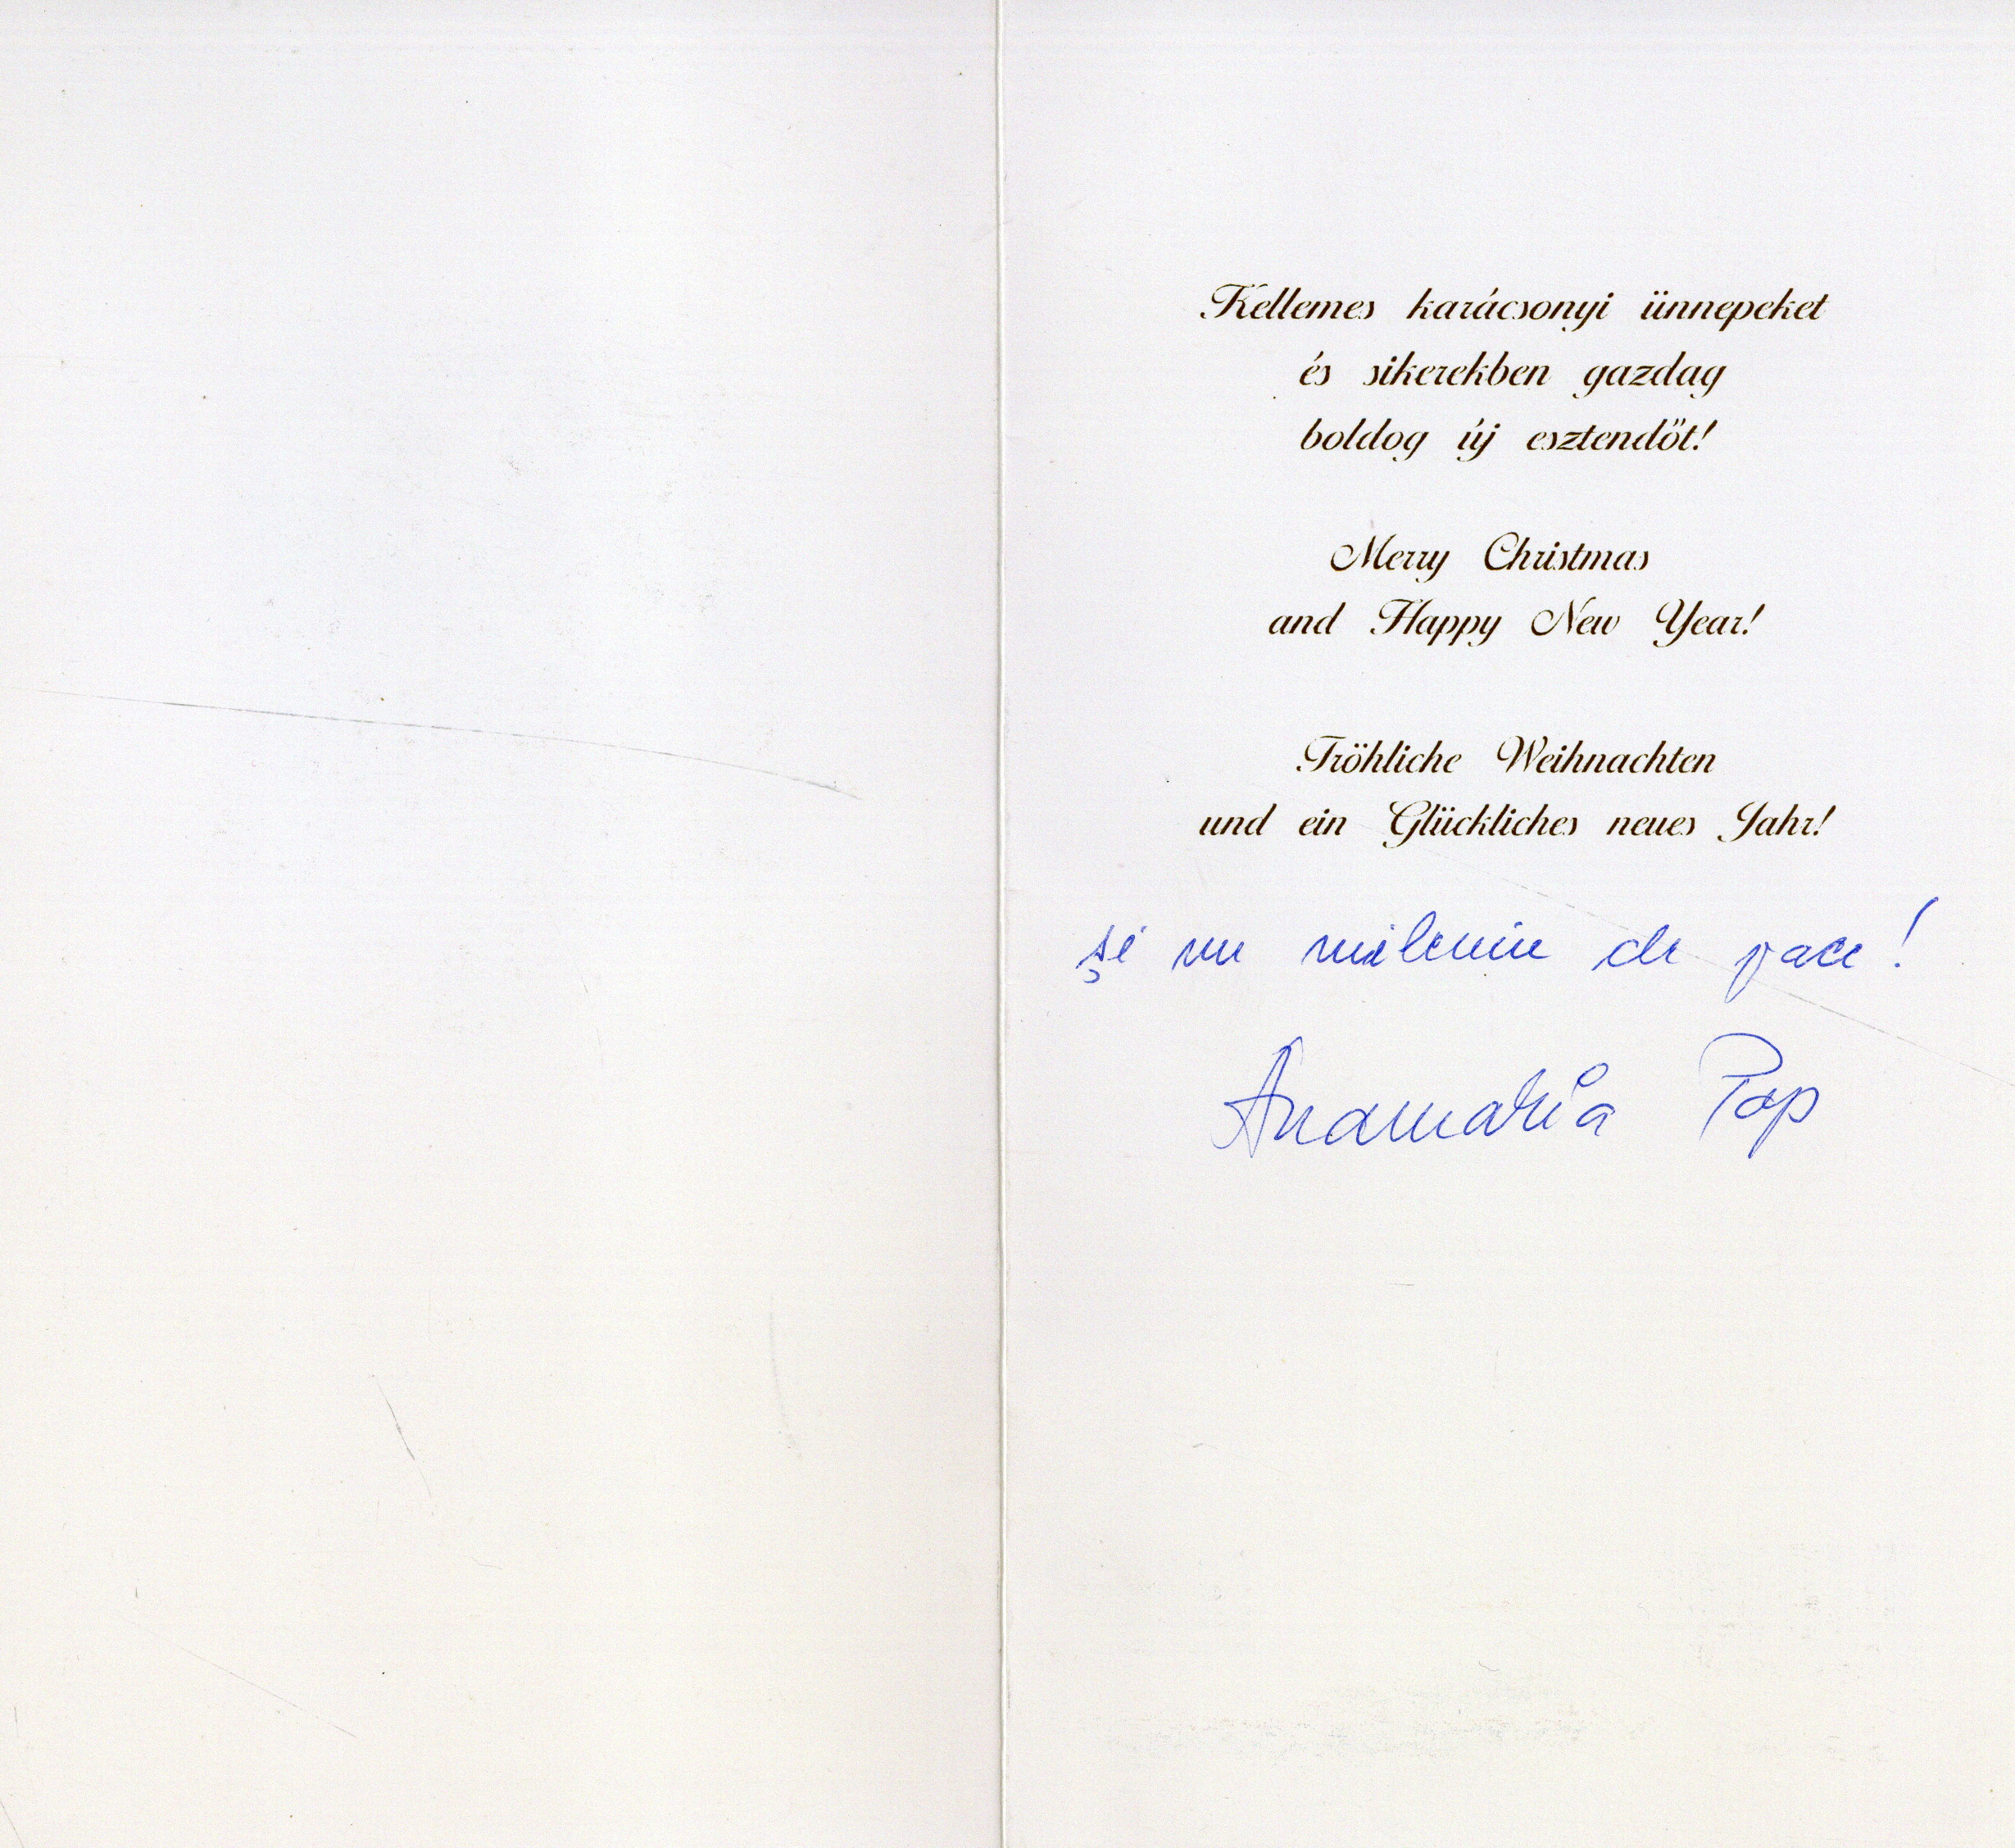 Kellemes karácsonyi ünnepeket
és sikerekben gazdag
boldog új esztendőt!
Merry Christmas
and Happy New Year!
Fröhliche Weihnachten
und ein Glückliches neues Jahr!
și un mileniu de pace!
Anamaria Pop